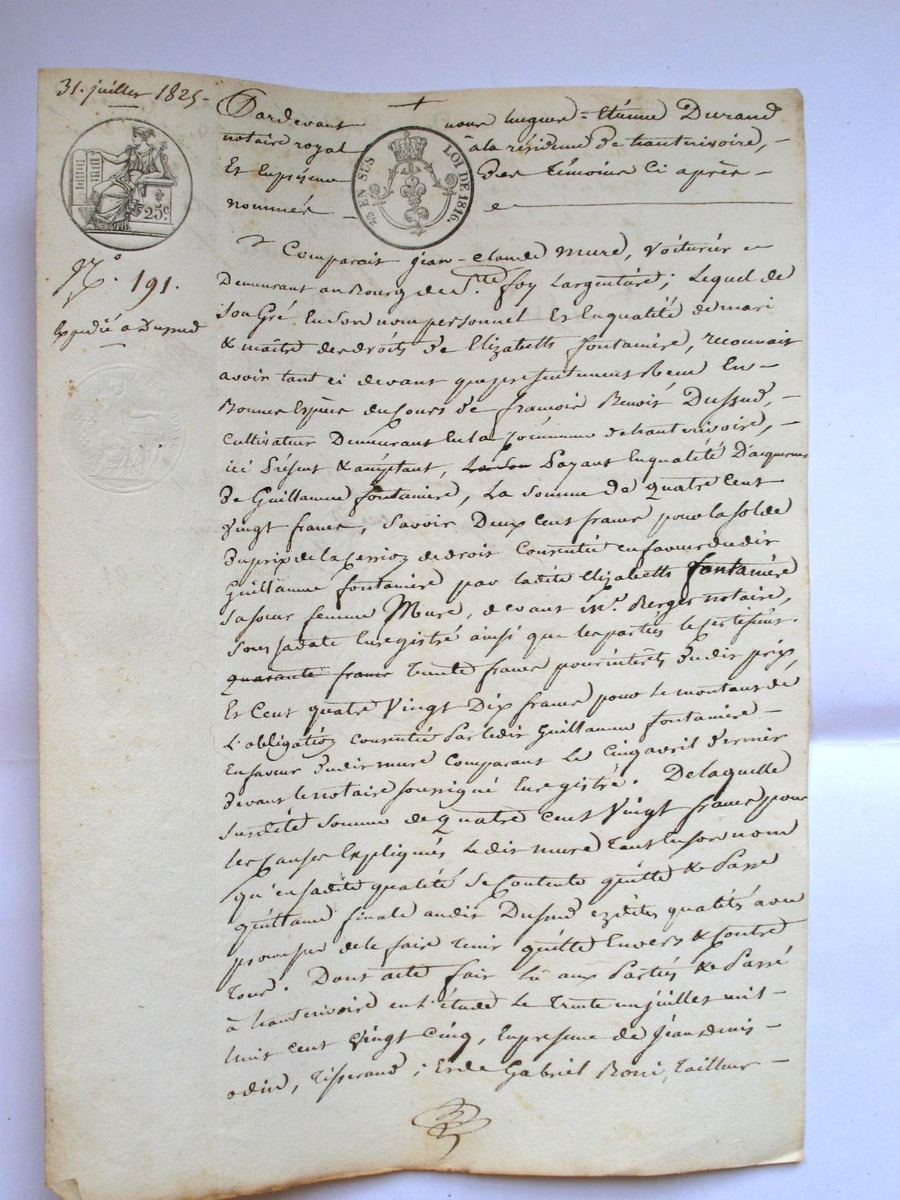 31. juillet 1825-
Pardevant nous hugues = Etienne Durand
notaire royal à la résidence de hauterivoire, -
Et En présence des Témoins Ci après -
nommés
25 EN SUS
LOI DE 1816.
25c
N.° 191.
Expédié a Dussud
Comparait jean-claude Mure, Voiturier
Demeurant au Bourg de Ste. foy Largentière; Lequel de
Son Gré En Son nom personnel Et En qualité de mari
& maître des droits de Elizabeth fontanière, reconnait
avoir tant ci devant que présentement Reçu En
Bonnes Espèces du Cours de françois Benoit Dussud, -
Cultivateur Demeurant En la commune de hauterivoire, -
ici Présent & acceptant, Payant En qualité D'acquereur
De Guillaume fontanière, La Somme De quatre Cent
Vingt francs, Savoir Deux Cent francs pour la Solde
Du prix de la Cession de droit Consentie en faveur du dit
Guillaume fontanière par ladite Elizabeth fontanière
Sa soeur femme Mure, devant Me. Berger notaire,
Sous Sa date Enregistré ainsi que les parties le
quarante francs Trente francs pour intérêts Du dit prix,
Et Cent quatre Vingt Dix francs pour le montant de
L'obligation consentie Par le dit Guillaume fontanière -
En faveur Du dit mure Comparant Le Cinq avril Dernier
Devant le notaire soussigné Enregistré. De laquelle
Susdite Somme de quatre Cent Vingt francs pour
les causes Expliquées Le dit mure Tant En son nom
qu'en sadite qualité Se Contente quitte & Passe
quittance finale au dit Dussud ezdites qualités avec
promesse de le faire Tenir quitte Envers & Contre
Tous. Dont acte fait Lu aux Parties & Passé
à hauterivoire en L'étude Le Trente un juillet mil -
huit cent Vingt Cinq, En présence de Jean denis -
odin, Tisserand; Et de Gabriel Tailleur -